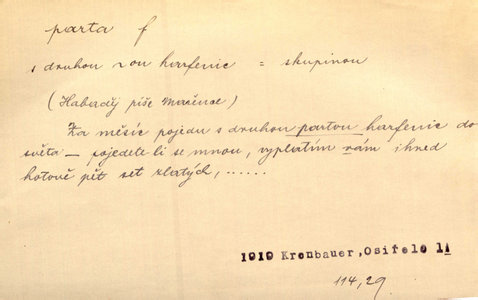 parta f
s druhou ~ou harfenic = skupinou
(Habaděj píše Mařence)
Za měsíc pojedu s druhou partou harfenic do
světa – pojedete-li se mnou, vyplatím vám ihned
hotově pět set zlatých, ......
1919 Kronbauer, Osiřelé 11
114, 29